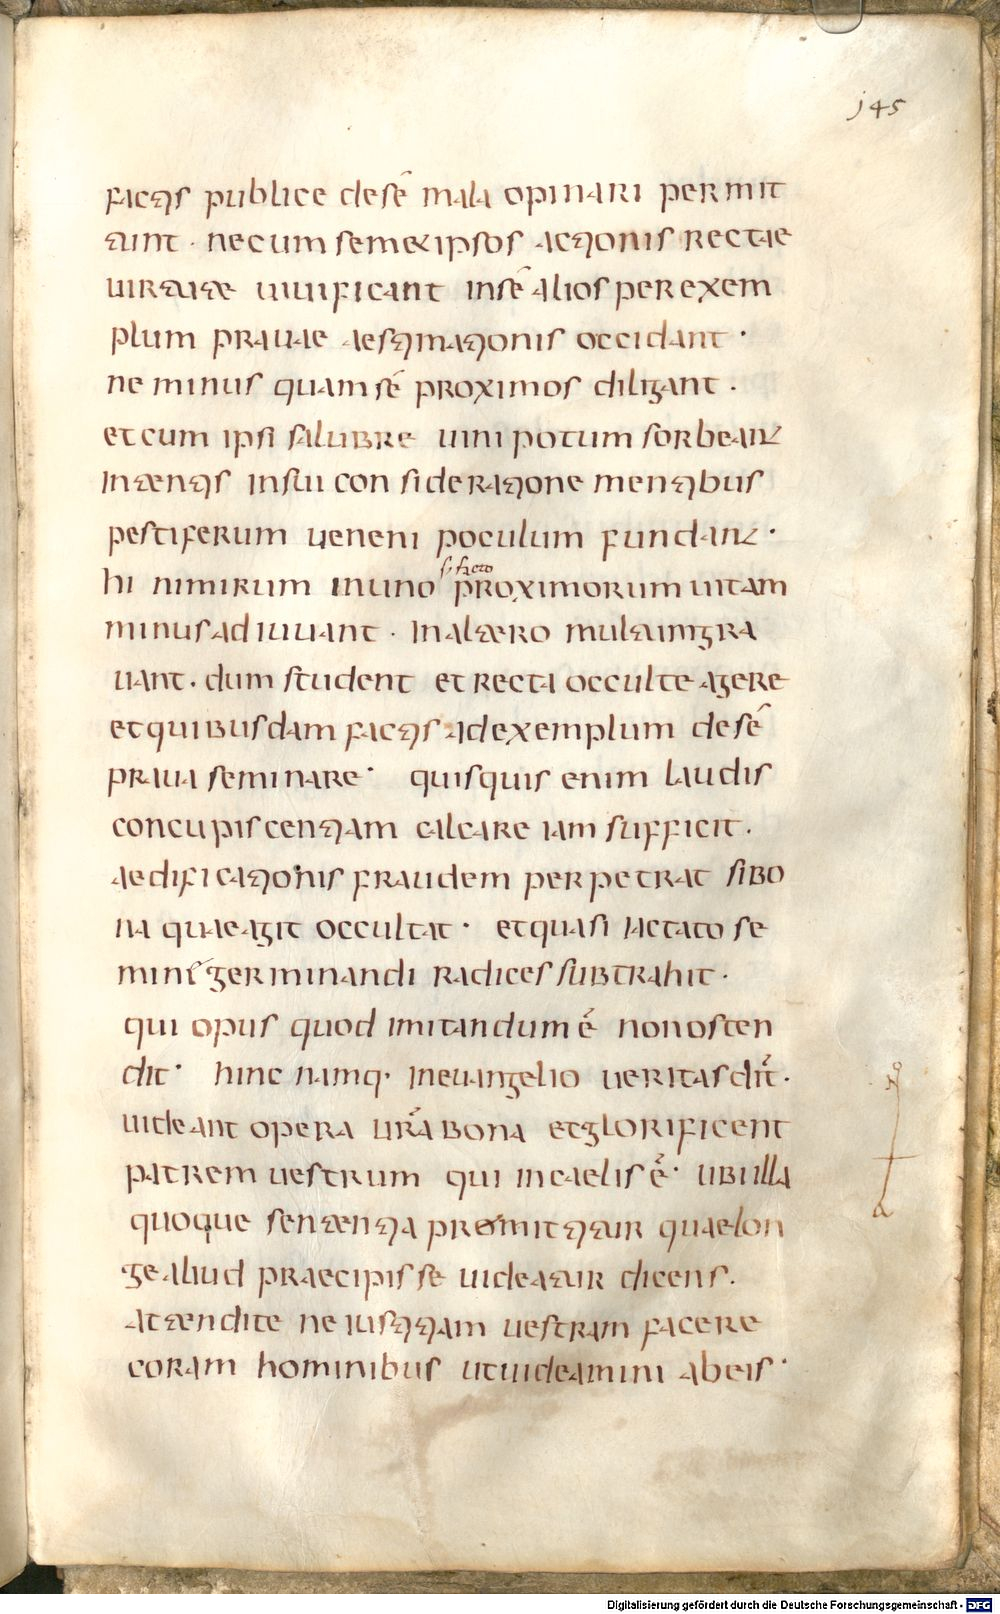 145
factis publice de se mala opinari permit
tunt · ne cum semet ipsos actionis rectae
uirtute uiuificant in sē alios per exem
plum prauae aestimationis occidant ·
ne minus quam sē proximos diligant .
et cum ipsi salubre uini potum sorbeant
intentis in sui consideratione mentibus
pestiferum ueneni poculum fundant ·
hi nimirum in uno proximorum uitam
minus adiuuant · in altero multum gra
uant . dum student et recta occulte agere
et quibusdam factis ad exemplum de sē
praua seminare · quisquis enim laudis
concupiscentiam calcare iam sufficit .
aedificationis fraudem perpetrat si bo
na quae agit occultat · et quasi iactato se
mine germinandi radices subtrahit ·
qui opus quod imitandum ē non osten
dit · hinc namq · in euangelio ueritas dit .
uideant opera ura bona et glorificent
patrem uestrum qui in caelis ē · ubi illa
quoque sententia promittitur quae lon
ge aliud praecipisse uideatur dicens .
attendite ne iustitiam uestram facere
coram hominibus ut uideamini ab eis ·
Digitalisierung gefördert durch die Deutsche Forschungsgemeinschaft - DFG